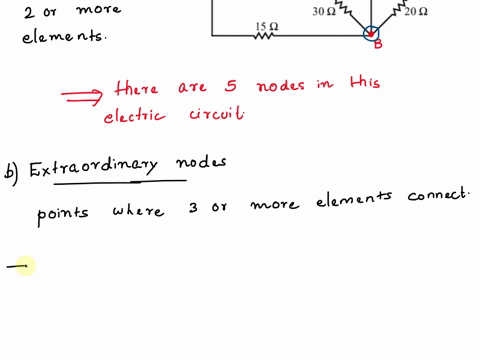 2 or more
elements.
30 Ω
20 Ω
15 Ω
B
⇒ there are 5 nodes in this
electric circuit.
b) Extraordinary nodes
points where 3 or more elements connect.